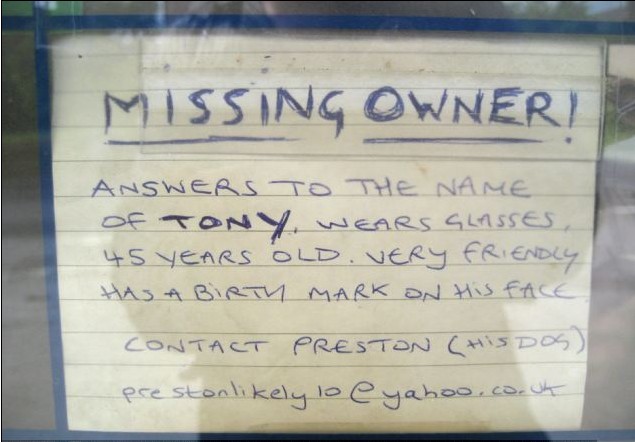 MISSING OWNER!
ANSWERS TO THE NAME
OF TONY. WEARS GLASSES,
45 YEARS OLD. VERY FRIENDLY
HAS A BIRTH MARK ON HIS FACE
CONTACT PRESTON (HIS DOG)
prestonlikely10@yahoo.co.uk